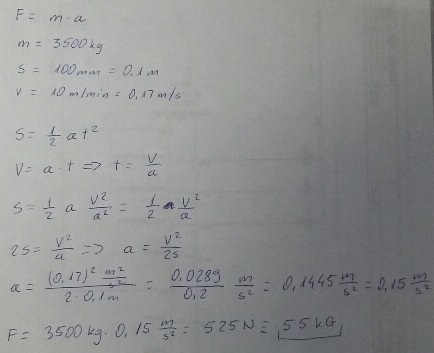 F = m · a
m = 3500 kg
s = 100mm = 0,1 m
v = 10 m/min = 0,17 m/s
S = 1/2 a t²
V = a · t => t = V/a
S = 1/2 a V²/a² = 1/2 V²/a
2s = V²/a => a = V²/2s
a = (0,17)² m²/s² / 2 · 0,1m = 0.0289/0,2 m/s² = 0,1445 m/s² = 0,15 m/s²
F = 3500 kg · 0,15 m/s² = 525 N = 55 kG